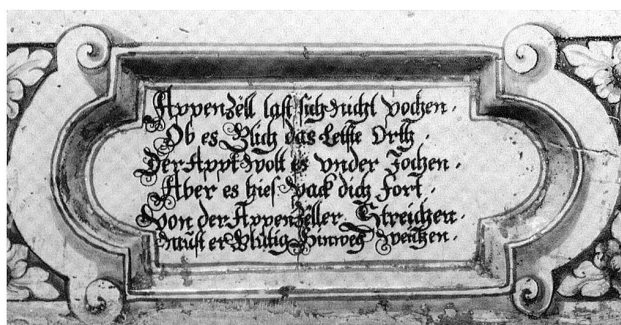 Appenzell last sich nicht bochen.
Ob es glich das Letste Orth.
Der Appt wolt es vnder Jochen.
Aber es hies pack dich fort.
Von der Appenzeller Streichen.
must er blutig hinweg weichen.